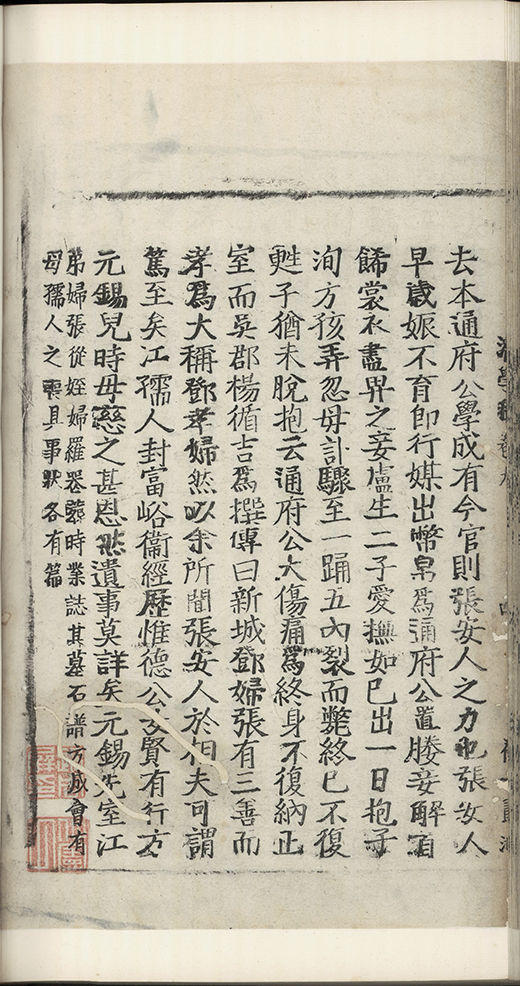 去本通府公學成有今官則張安人之力也張安人
早歲娠不育卽行媒出幣帛爲通府公置媵妾解
餙裳衣盡畀之妾盧生二子愛撫如已出一日抱子
洵方孩弄忽母訃驟至一踊五內裂而斃終已不復
甦子猶未脫抱云通府公大傷痛爲終身不復納正
室而吳郡楊循吉爲撰傳曰新城鄧婦張有三善而
孝爲大稱鄧孝婦然以余所聞張安人於相夫可謂
篤至矣江孺人封富峪衞經歷惟德公女賢有行方
元錫兒時母慈之甚恩然遺事莫詳矣元錫先室江
弟婦張從姪婦羅忝時業誌其墓石譜方成會有
母孺人之喪且事狀各有篇